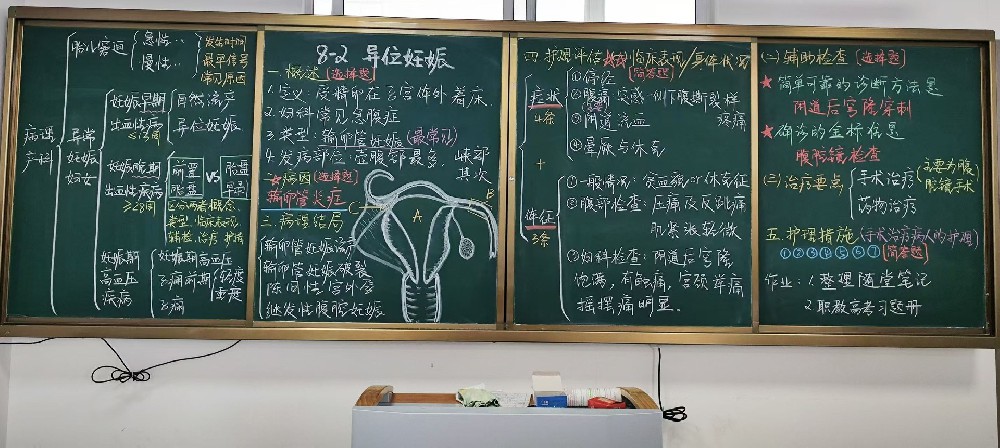 胎儿窘迫
急性··
慢性··
发生时间
最早信号
常见原因
病理
产科
异常
妊娠
妇女
妊娠早期
出血性疾病
自然流产
异位妊娠
妊娠晚期
出血性疾病
≥28周
前置
胎盘
VS
胎盘
早剥
类型、临床表现
治疗
妊娠期
高血压
疾病
妊娠期高血压
子痫前期
轻度
重度
子痫
8-2 异位妊娠
一.概述 [选择题]
1.定义:受精卵在子宫体外着床.
2.妇科常见急腹症
3.类型:输卵管妊娠(最常见)
4.发病部位:壶腹部最多,峡部
其次
★病因 [选择题]
输卵管炎症
二.病理结局
输卵管妊娠流产
输卵管妊娠破裂
陈旧性宫外孕
继发性腹腔妊娠
A
B
C
四.护理评估 临床表现/身体状况
[简答题]
症状
4条
①停经
②腹痛:突感一侧下腹撕裂样
疼痛
③阴道流血
④晕厥与休克
+
体征
3条
①一般情况:贫血貌or休克征
②腹部检查:压痛及反跳痛
肌紧张轻微
③妇科检查:阴道后穹隆
饱满,有触痛,宫颈举痛
摇摆痛明显.
(二)辅助检查 [选择题]
★简单可靠的诊断方法是
阴道后穹隆穿刺
★确诊的金标准是
腹腔镜检查
(三)治疗要点
手术治疗
(主要为腹
腔镜手术)
药物治疗
五.护理措施(手术治疗病人的护理)
①②③④⑤⑥⑦ [简答题]
作业:1.整理随堂笔记
2.职教高考习题册